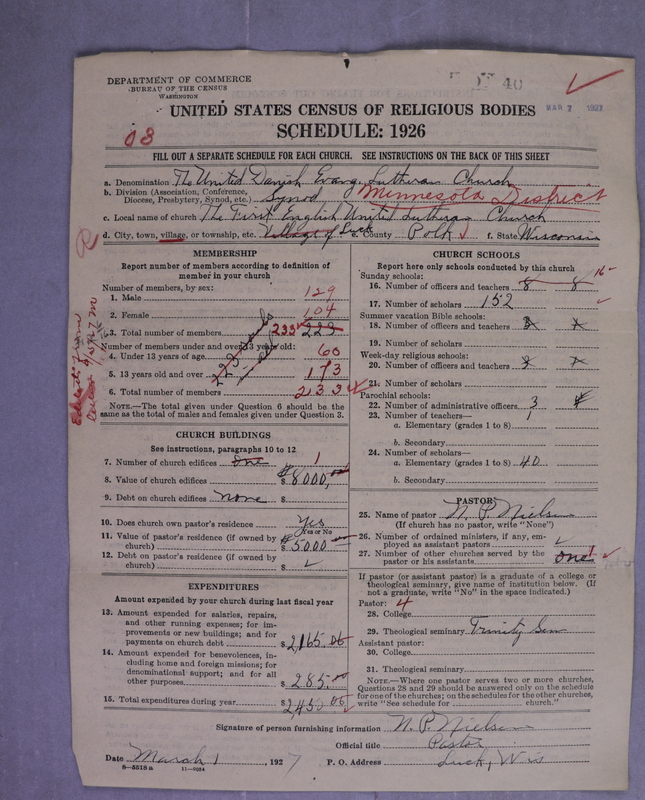 DEPARTMENT OF COMMERCE
BUREAU OF THE CENSUS
WASHINGTON
40
MAR 7 1927
UNITED STATES CENSUS OF RELIGIOUS BODIES
SCHEDULE: 1926
FILL OUT A SEPARATE SCHEDULE FOR EACH CHURCH. SEE INSTRUCTIONS ON THE BACK OF THIS SHEET
a. Denomination The United Danish Evang. Lutheran Church
b. Division (Association, Conference, Diocese, Presbytery, Synod, etc.) Synod Minnesota District
c. Local name of church The First English United Lutheran Church
d. City, town, village, or township, etc. Village of Luck e. County Polk f. State Wisconsin
MEMBERSHIP
Report number of members according to definition of member in your church
Number of members, by sex:
1. Male 129
2. Female 104
3. Total number of members 233 223
Number of members under and over 13 years old:
4. Under 13 years of age 60
5. 13 years old and over 173
6. Total number of members 233
NOTE.—The total given under Question 6 should be the same as the total of males and females given under Question 3.
CHURCH BUILDINGS
See instructions, paragraphs 10 to 12
7. Number of church edifices one 1
8. Value of church edifices $ 8000,00
9. Debt on church edifices none $
10. Does church own pastor's residence Yes
Yes or No
11. Value of pastor's residence (if owned by church) $ 5000
12. Debt on pastor's residence (if owned by church) $
EXPENDITURES
Amount expended by your church during last fiscal year
13. Amount expended for salaries, repairs, and other running expenses; for improvements or new buildings; and for payments on church debt $ 2165.06
14. Amount expended for benevolences, including home and foreign missions; for denominational support; and for all other purposes $ 285.00
15. Total expenditures during year $ 2450 06
CHURCH SCHOOLS
Report here only schools conducted by this church
Sunday schools:
16. Number of officers and teachers 8 8 16
17. Number of scholars 152
Summer vacation Bible schools:
18. Number of officers and teachers
19. Number of scholars
Week-day religious schools:
20. Number of officers and teachers
21. Number of scholars
Parochial schools:
22. Number of administrative officers 3
23. Number of teachers—
a. Elementary (grades 1 to 8) 1
b. Secondary
24. Number of scholars—
a. Elementary (grades 1 to 8) 40
b. Secondary
PASTOR
25. Name of pastor N. P. Nielsen
(If church has no pastor, write "None")
26. Number of ordained ministers, if any, employed as assistant pastors
27. Number of other churches served by the pastor or his assistants one 1
If pastor (or assistant pastor) is a graduate of a college or theological seminary, give name of institution below. (If not a graduate, write "No" in the space indicated.)
Pastor:
28. College
29. Theological seminary Trinity Sem
Assistant pastor:
30. College
31. Theological seminary
NOTE.—Where one pastor serves two or more churches, Questions 28 and 29 should be answered only on the schedule for one of the churches; on the schedules for the other churches, write "See schedule for church."
Signature of person furnishing information N. P. Nielsen
Official title Pastor
Date March 1, 1927 P. O. Address Luck, Wis
8—5518a 11—9034